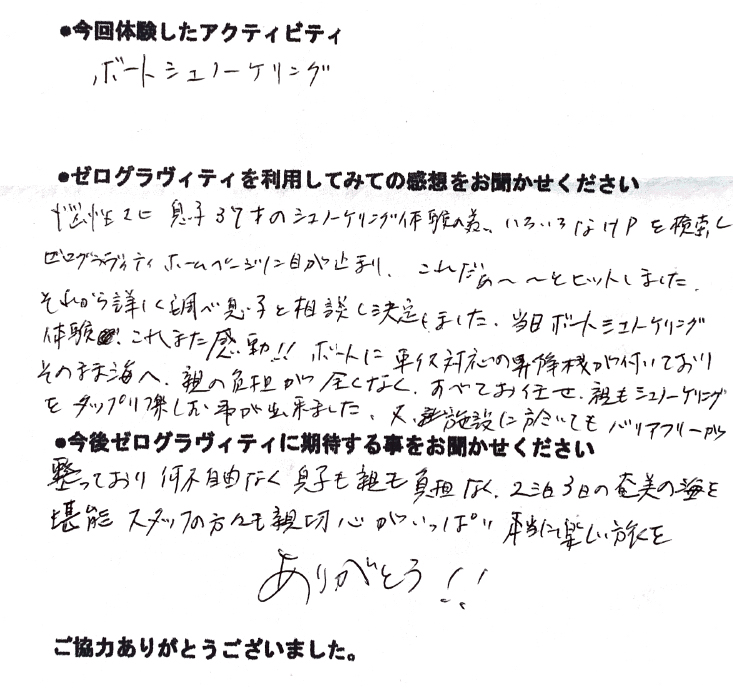 ●今回体験したアクティビティ
ボートシュノーケリング
●ゼログラヴィティを利用してみての感想をお聞かせください
息子37才のシュノーケリング体験の為、いろいろなHPを検索し
ゼログラヴィティホームページに目が止まり、これだぁ～～とヒットしました。
それから詳しく調べ息子と相談し決定しました。当日ボートシュノーケリング
体験、これまた感動!!ボートに車イス対応の昇降機が付いており
そのまま海へ、親の負担が全くなく、すべてお任せ、親もシュノーケリング
をタップリ楽しむ事が出来ました。又、施設に於いてもバリアフリーが
●今後ゼログラヴィティに期待する事をお聞かせください
整っており何不自由なく息子も親も負担なく、2泊3日の奄美の海を
堪能 スタッフの方々も親切心がいっぱい 本当に楽しい旅を
ありがとう!!
ご協力ありがとうございました。